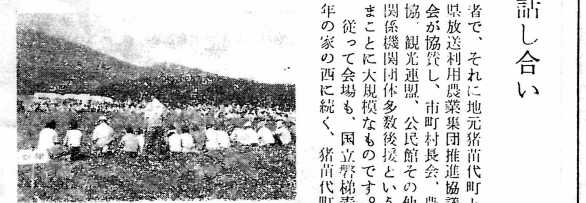 話し合い
者で、それに地元猪苗代町
県放送利用農業集団推進協議
会が協賛し、市町村長会、農
協、観光連盟、公民館その他
関係機関団体多数後援という
まことに大規模なものです。
従って会場も、国立磐梯青
年の家の西に続く、猪苗代町